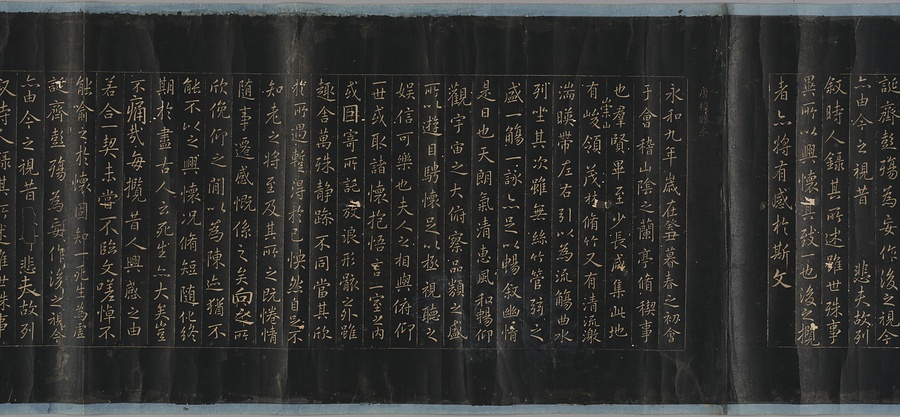 誕齊彭殤為妄作後之視今
亦由今之視昔 悲夫故列
敘時人錄其所述雖世殊事
異所以興懷其致一也後之攬
者亦將有感於斯文
永和九年歲在癸丑暮春之初會
于會稽山陰之蘭亭脩禊事
也羣賢畢至少長咸集此地
有崇山峻領茂林脩竹又有清流激
湍暎帶左右引以為流觴曲水
列坐其次雖無絲竹管弦之
盛一觴一詠亦足以暢敘幽情
是日也天朗氣清惠風和暢仰
觀宇宙之大俯察品類之盛
所以遊目騁懷足以極視聽之
娛信可樂也夫人之相與俯仰
一世或取諸懷抱悟言一室之內
或因寄所託放浪形骸之外雖
趣舍萬殊靜躁不同當其欣
於所遇暫得於己怏然自足不
知老之將至及其所之既惓情
隨事遷感慨係之矣向之所
欣俛仰之閒以為陳迹猶不
能不以之興懷況脩短隨化終
期於盡古人云死生亦大矣豈
不痛哉每攬昔人興感之由
若合一契未嘗不臨文嗟悼不
能喻之於懷固知一死生為虛
誕齊彭殤為妄作後之視今
亦由今之視昔 悲夫故列
敘時人錄其所述雖世殊事